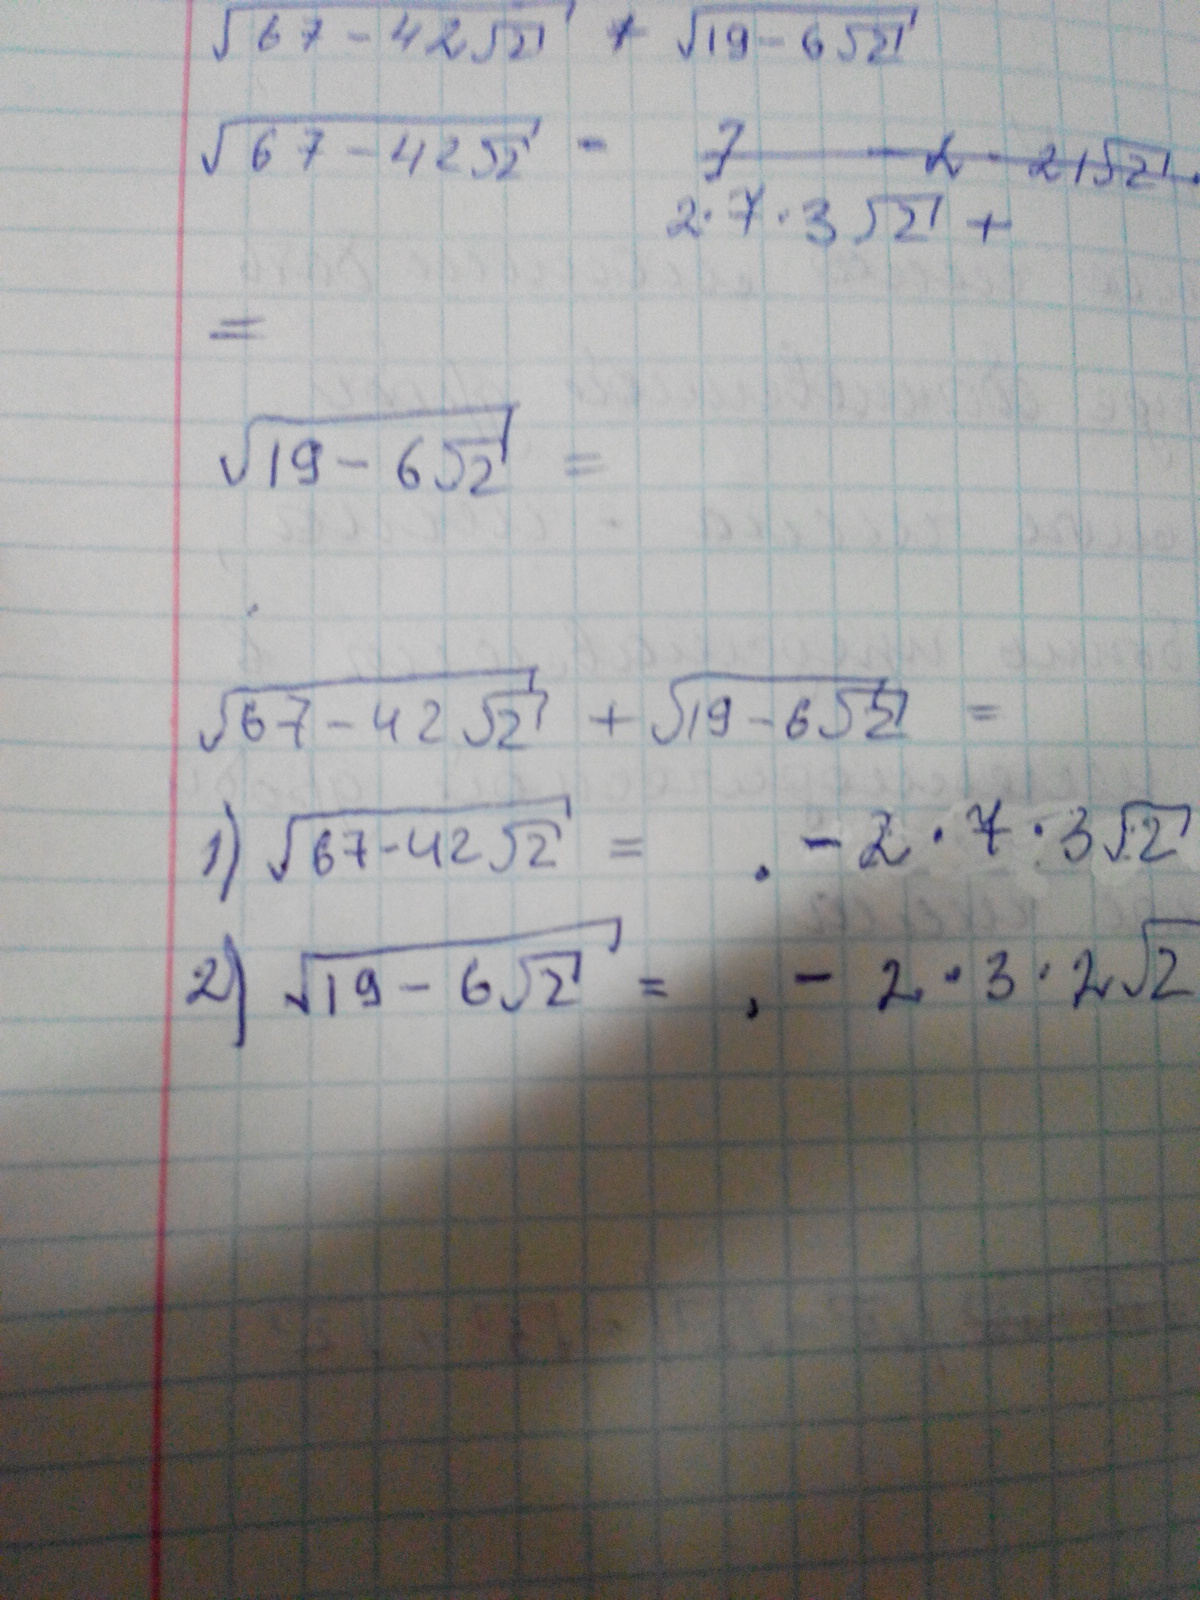 √(67 - 42√2) + √(19 - 6√2)
√(67 - 42√2) - 7 - 2 · 21√2
2 · 7 · 3√2 +
=
√(19 - 6√2) =
√(67 - 42√2) + √(19 - 6√2) =
1) √(67 - 42√2) = . - 2 · 7 · 3√2
2) √(19 - 6√2) = , - 2 · 3 · 2√2